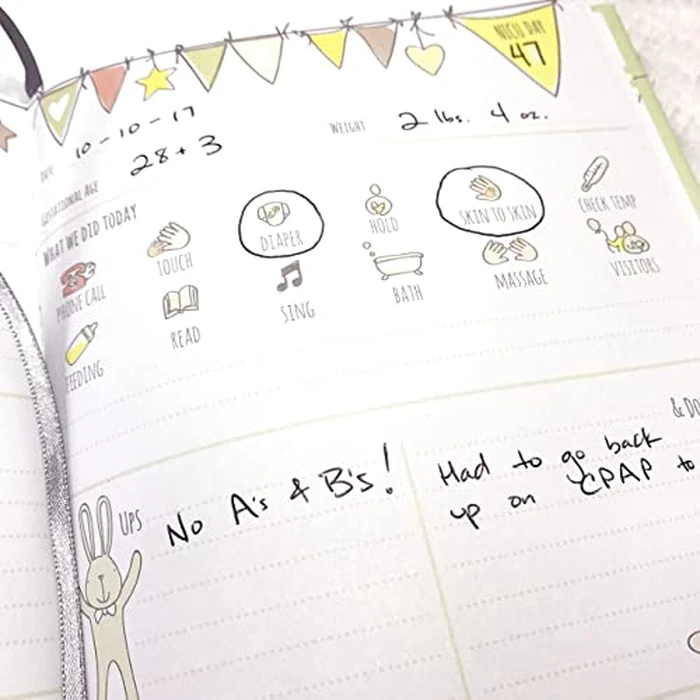 NICU DAY
47
DATE 10-10-17
WEIGHT 2 lbs. 4 oz.
GESTATIONAL AGE 28+3
WHAT WE DID TODAY
TOUCH
DIAPER
HOLD
SKIN TO SKIN
CHECK TEMP
PHONE CALL
READ
SING
BATH
MASSAGE
VISITORS
FEEDING
UPS
No A's & B's!
& DO
Had to go back
up on CPAP to